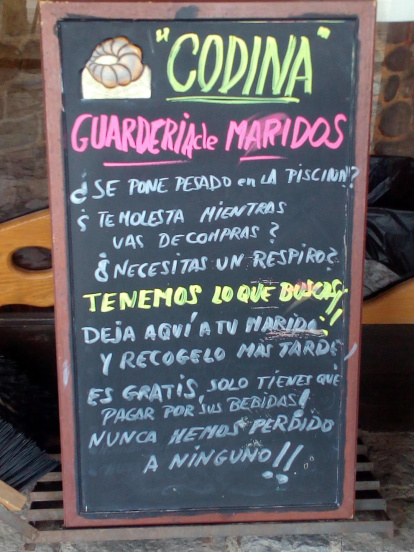 "CODINA"
GUARDERIA de MARIDOS
¿SE PONE PESADO en LA PISCINA?
¿TE MOLESTA MIENTRAS
VAS DE COMPRAS?
¿NECESITAS UN RESPIRO?
TENEMOS LO QUE BUSCAS!!
DEJA AQUÍ A TU MARIDO
Y RECOGELO MAS TARDE
ES GRATIS, SOLO TIENES QUE
PAGAR POR SUS BEBIDAS!
NUNCA HEMOS PERDIDO
A NINGUNO!!